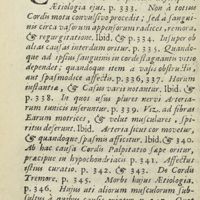 Ætiologia ejus. p. 333. Non à totius
Cordis motu convulsivo procedit; sed à sangui-
nis circa vasorum appensorum radices, remorâ,
& regurgitatione. Ibid. & p. 334. Insuper ob
alias causas interdum oritur. p. 335. Quando-
que ad ipsius sanguinis in corde flagrantis vitio
dependet; quandoque item a vasis obstructis,
aut spasmodicè affectis. p. 336, 337. Horum
instantia, & Casus varii notantur. Ibid. &
p. 338. In quot usus plures nervi Arteria-
rum truncis inserantur. p. 339. Viz. ad fibras
Earum motrices, & velut musculares, Spi-
ritus deferunt. Ibid. Arteria sicut cor movetur,
& quandoque spasmis afficitur. Ibid. & p. 340.
Ab hac causâ Cordis Palpitatio sæpe oritur,
præcipue in hypochondriacis p. 341. Affectus
istius curatio. p. 342. & 343. De Cordis
Tremore. p. 345. Morbi hujus Ætiologia.
p. 346. Hujus uti aliorum musculorum Sub-